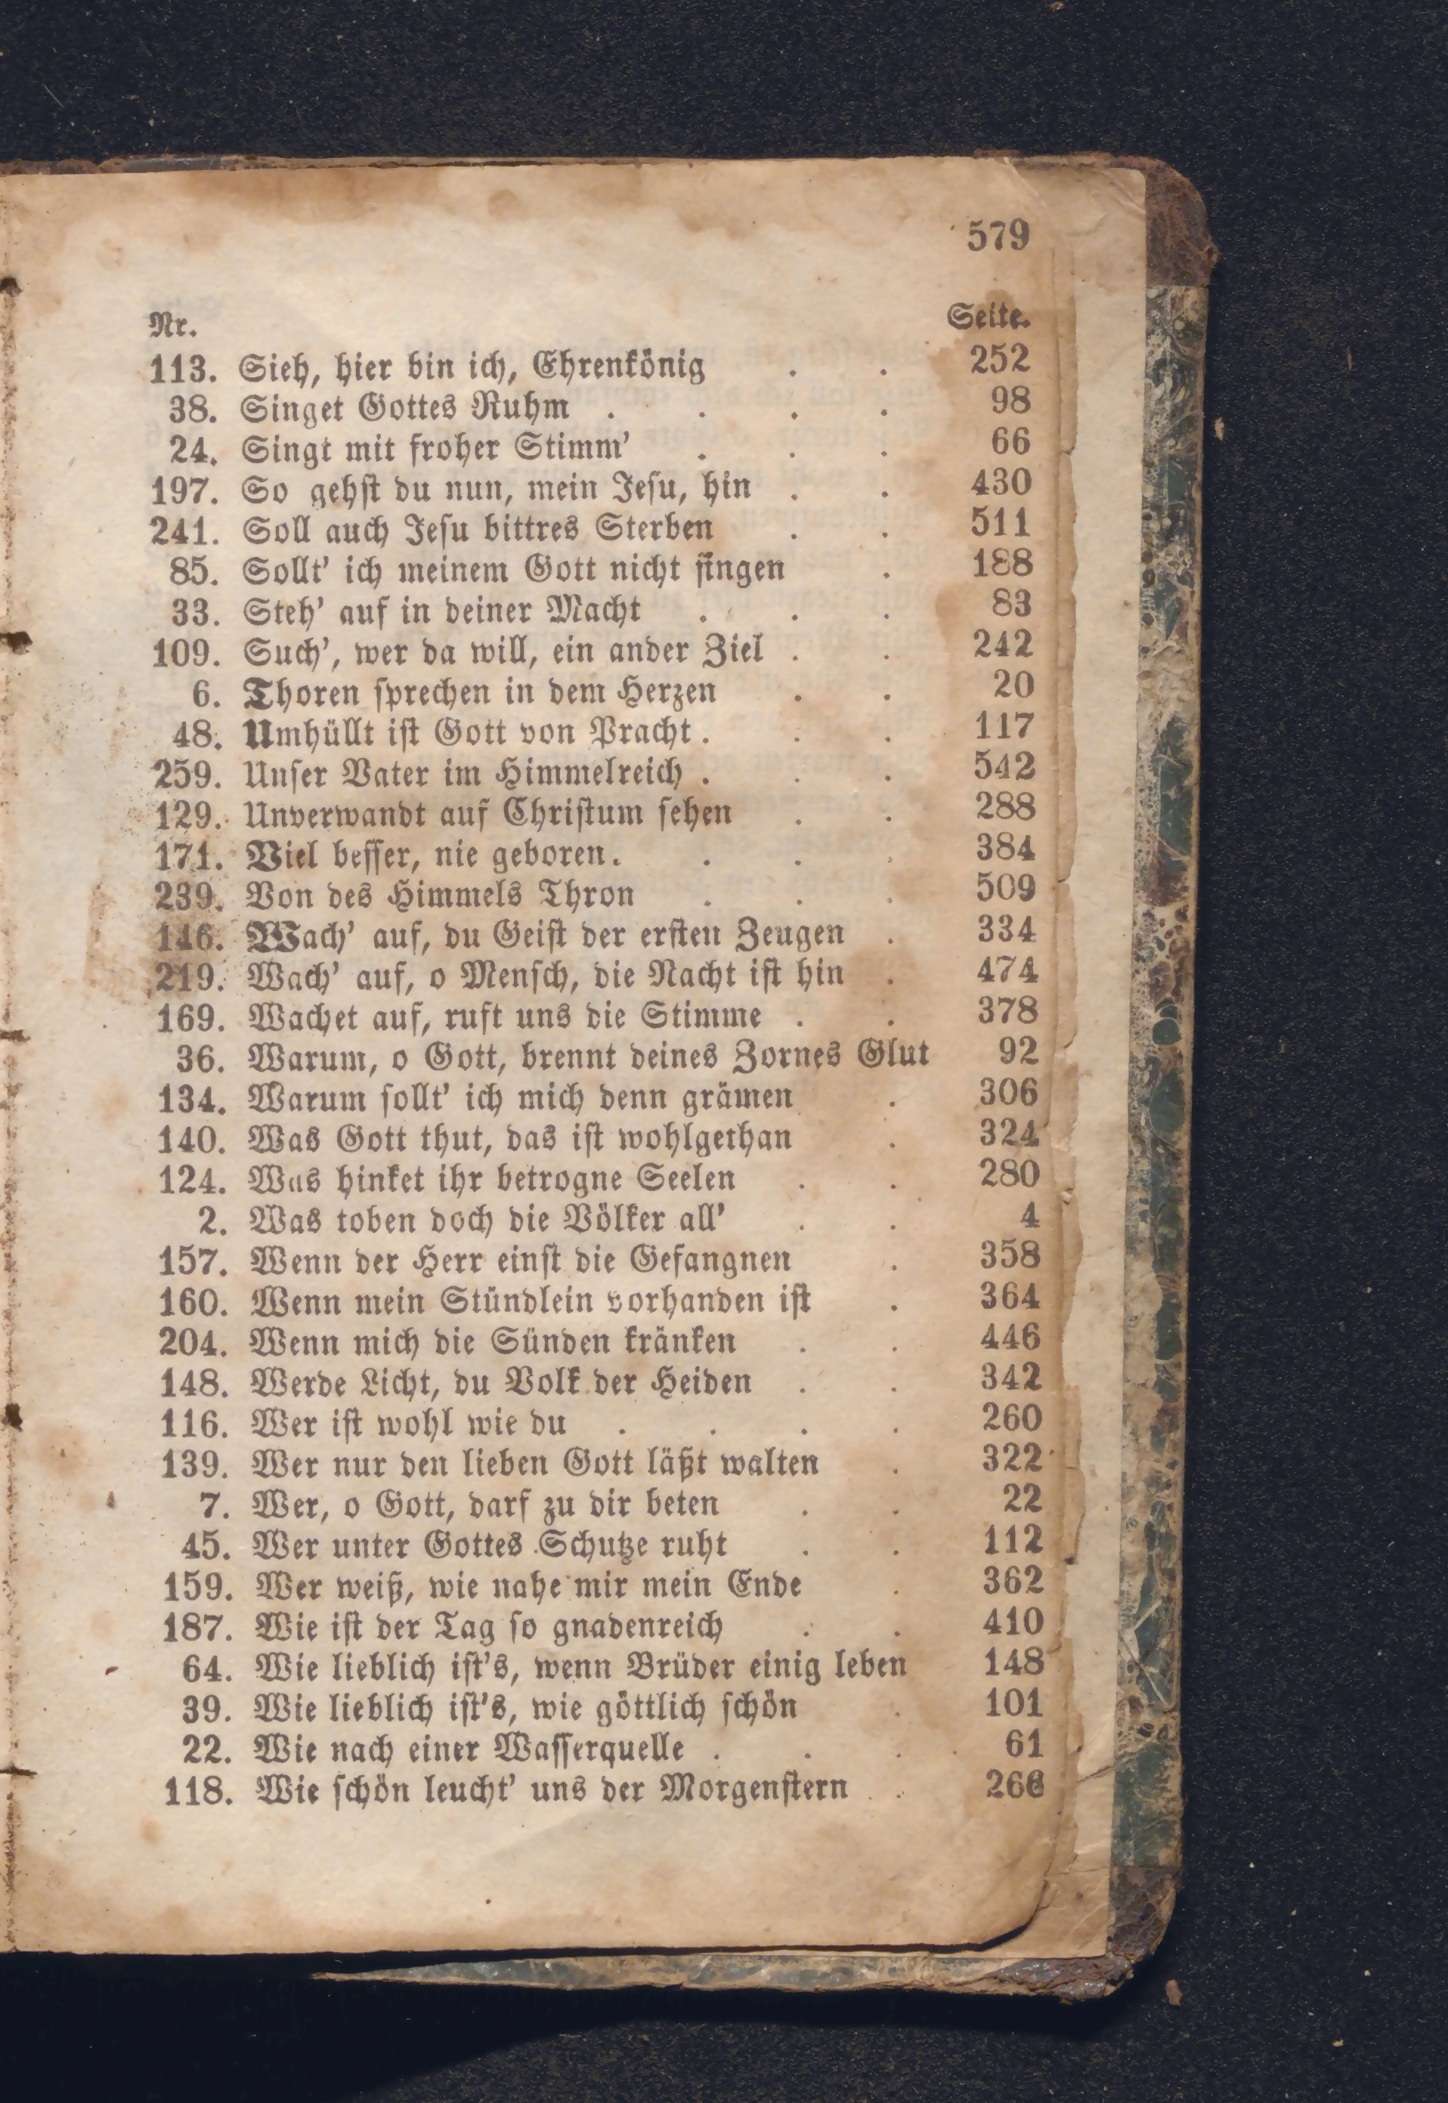 579
Nr. Seite.
113. Sieh, hier bin ich, Ehrenkönig . . 252
38. Singet Gottes Ruhm . . . . 98
24. Singt mit froher Stimm' . . . 66
197. So gehst du nun, mein Jesu, hin . . 430
241. Soll auch Jesu bittres Sterben . . 511
85. Sollt' ich meinem Gott nicht singen . 188
33. Steh' auf in deiner Macht . . . 83
109. Such', wer da will, ein ander Ziel . . 242
6. Thoren sprechen in dem Herzen . . 20
48. Umhüllt ist Gott von Pracht . . . 117
259. Unser Vater im Himmelreich . . . 542
129. Unverwandt auf Christum sehen . . 288
171. Viel besser, nie geboren . . . . 384
239. Von des Himmels Thron . . . 509
146. Wach' auf, du Geist der ersten Zeugen . 334
219. Wach' auf, o Mensch, die Nacht ist hin . 474
169. Wachet auf, ruft uns die Stimme . . 378
36. Warum, o Gott, brennt deines Zornes Glut 92
134. Warum sollt' ich mich denn grämen . 306
140. Was Gott thut, das ist wohlgethan . 324
124. Was hinket ihr betrogne Seelen . . 280
2. Was toben doch die Völker all' . . 4
157. Wenn der Herr einst die Gefangnen . 358
160. Wenn mein Stündlein vorhanden ist . 364
204. Wenn mich die Sünden kränken . . 446
148. Werde Licht, du Volk der Heiden . . 342
116. Wer ist wohl wie du . . . . 260
139. Wer nur den lieben Gott läßt walten . 322
7. Wer, o Gott, darf zu dir beten . . 22
45. Wer unter Gottes Schutze ruht . . 112
159. Wer weiß, wie nahe mir mein Ende . 362
187. Wie ist der Tag so gnadenreich . . 410
64. Wie lieblich ist's, wenn Brüder einig leben 148
39. Wie lieblich ist's, wie göttlich schön . 101
22. Wie nach einer Wasserquelle . . . 61
118. Wie schön leucht' uns der Morgenstern . 266